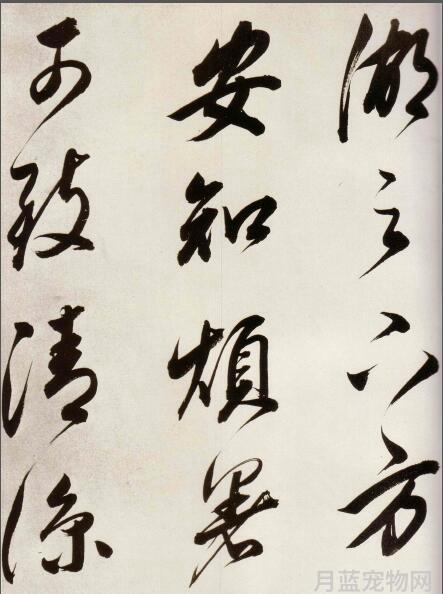 湖之六方
安知煩暑
可致清涼
月蓝宠物网